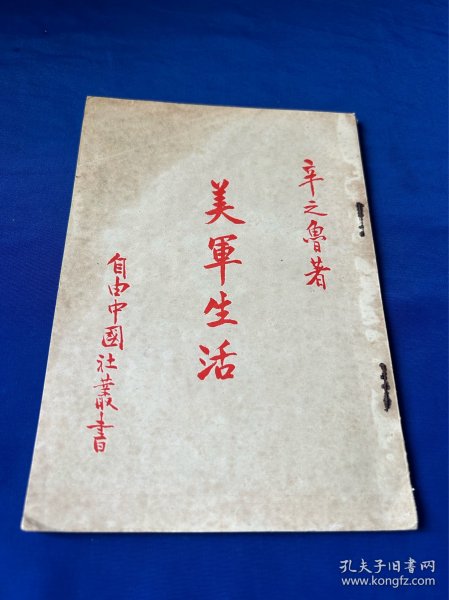 辛之魯著
美軍生活
自由中國社叢書
孔夫子旧书网
www.kongfz.com